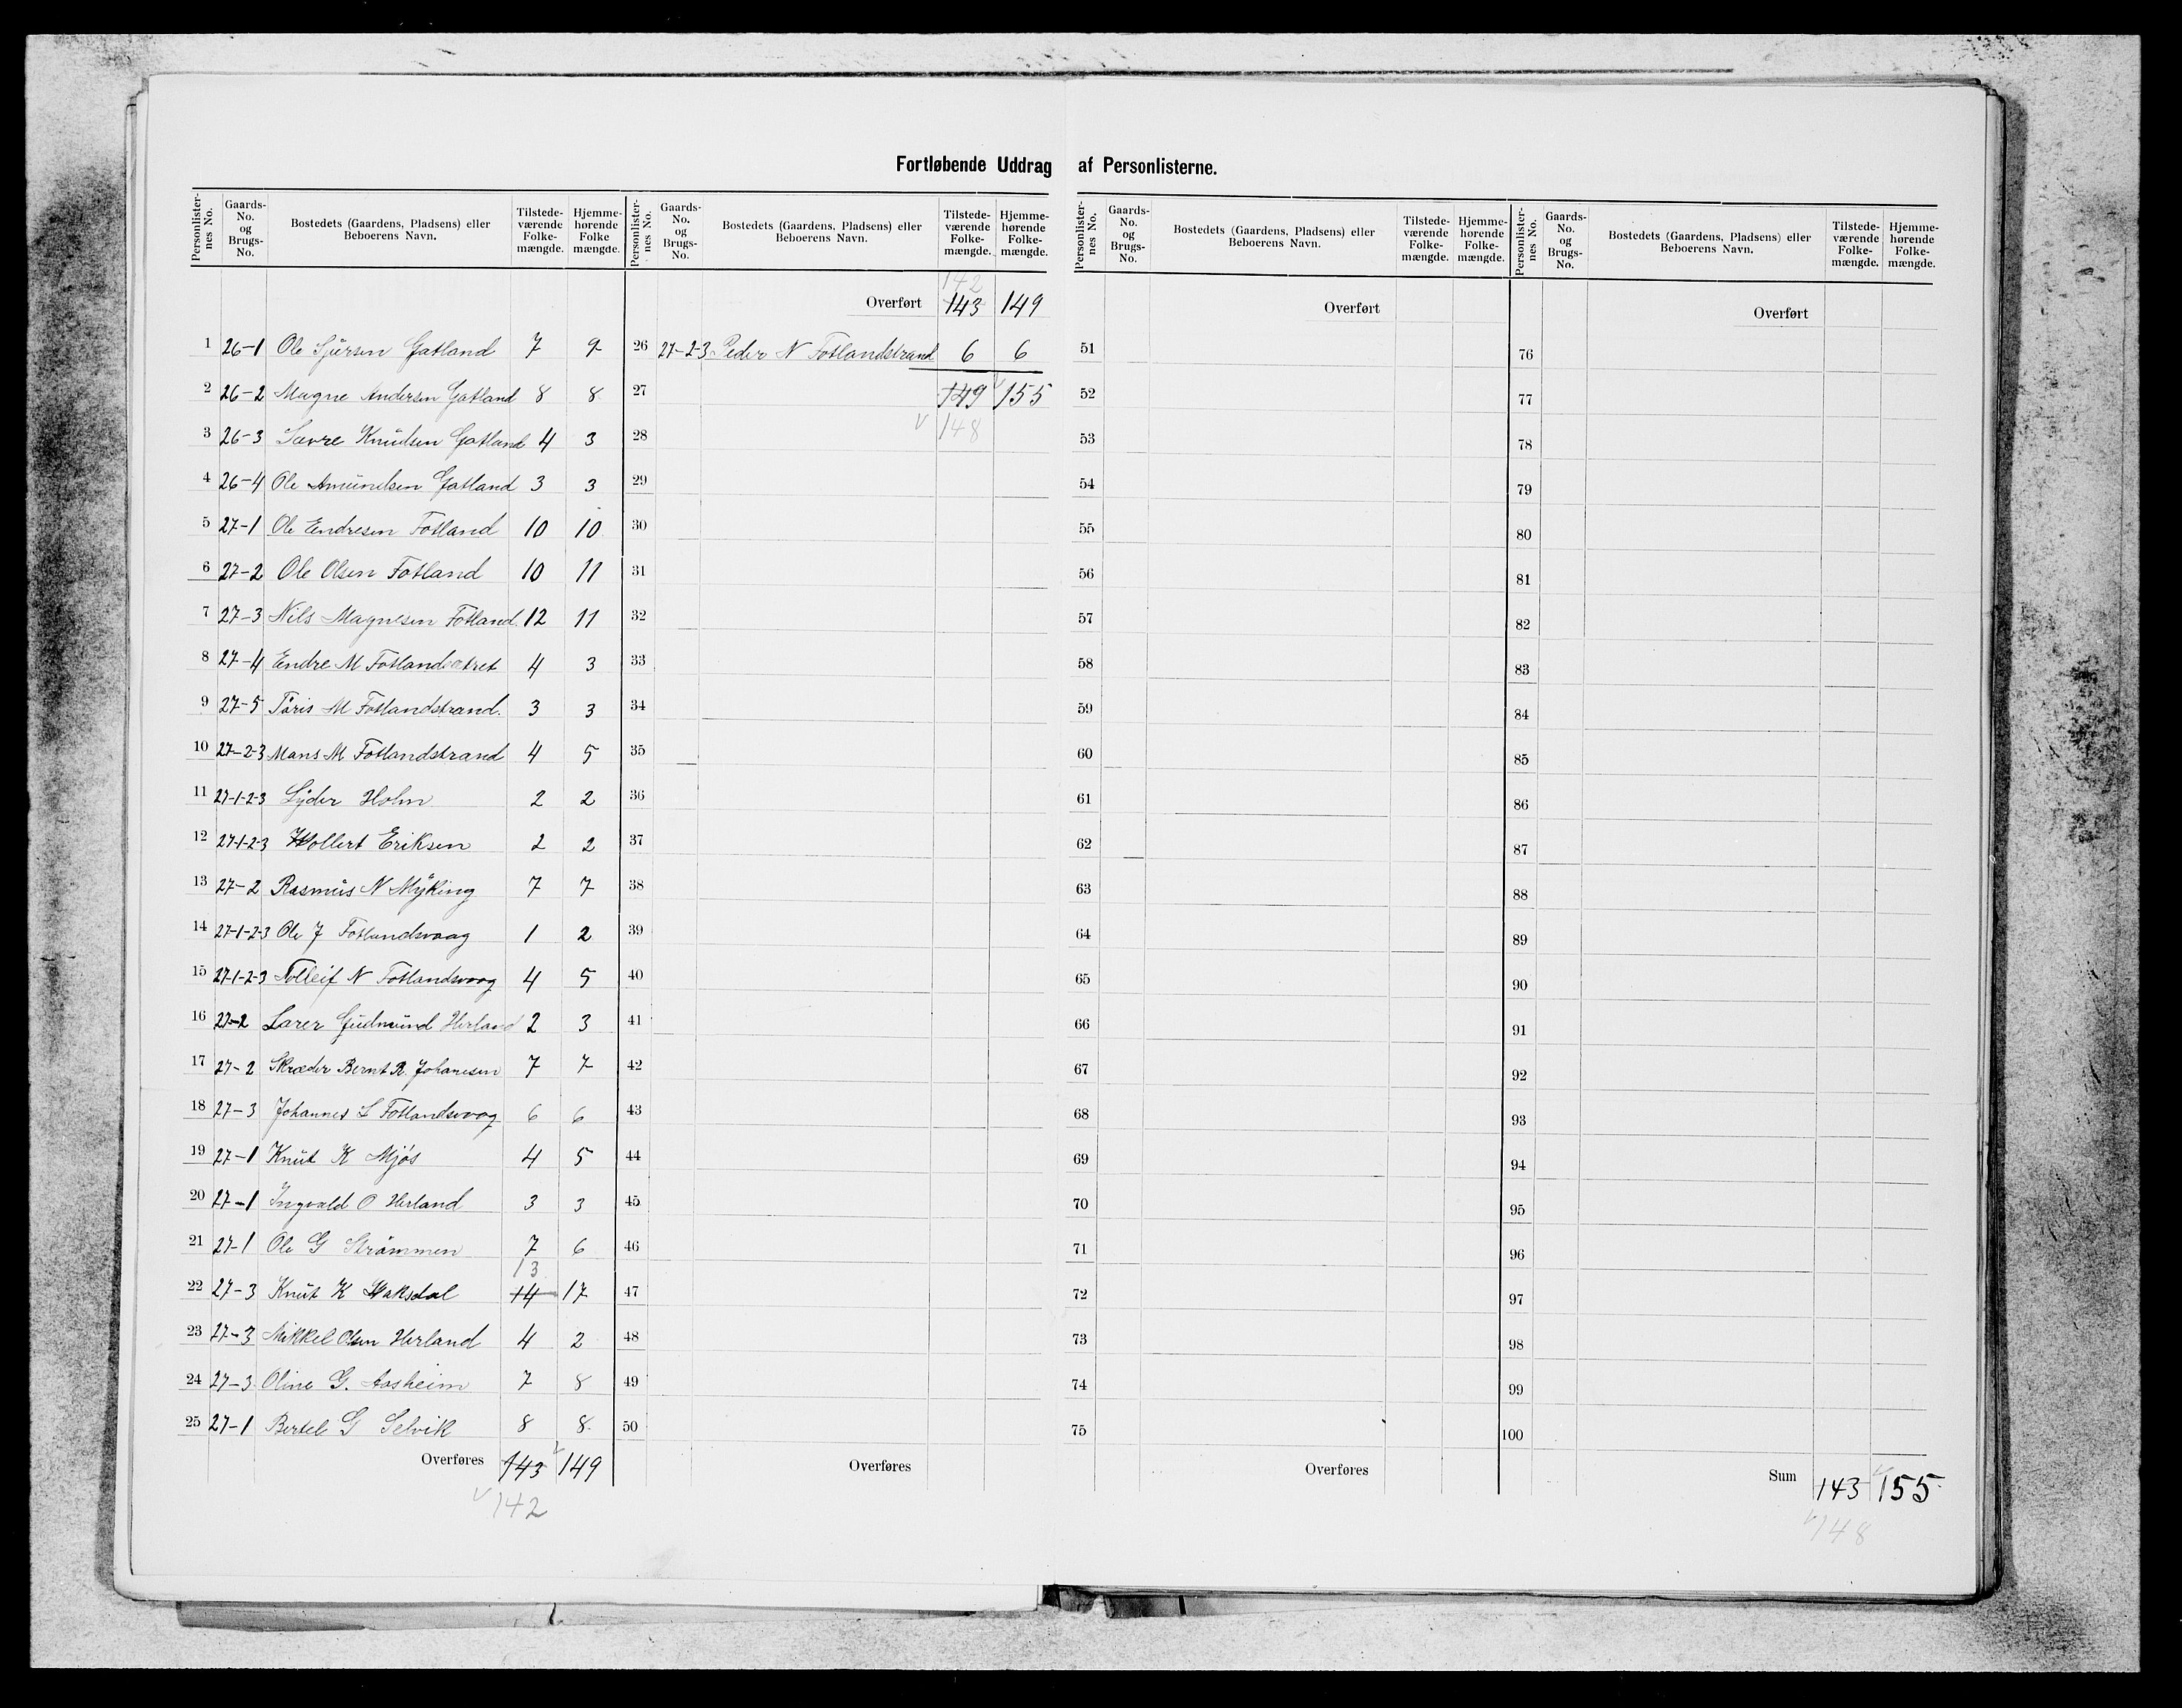 Fortløbende Uddrag af Personlisterne.
Personlisternes No. Gaards-No. og Brugs-No. Bostedets (Gaardens, Pladsens) eller Beboerens Navn. Tilstedeværende Folkemængde. Hjemmehørende Folkemængde.
Personlisternes No. Gaards-No. og Brugs-No. Bostedets (Gaardens, Pladsens) eller Beboerens Navn. Tilstedeværende Folkemængde. Hjemmehørende Folkemængde.
Personlisternes No. Gaards-No. og Brugs-No. Bostedets (Gaardens, Pladsens) eller Beboerens Navn. Tilstedeværende Folkemængde. Hjemmehørende Folkemængde.
Personlisternes No. Gaards-No. og Brugs-No. Bostedets (Gaardens, Pladsens) eller Beboerens Navn. Tilstedeværende Folkemængde. Hjemmehørende Folkemængde.
1 26-1 Ole Sjursen Gatland 7 9
2 26-2 Magne Andersen Gatland 8 8
3 26-3 Sævre Knudsen Gatland 4 3
4 26-4 Ole Amundsen Gatland 3 3
5 27-1 Ole Endresen Fotland 10 10
6 27-2 Ole Olsen Fotland 10 11
7 27-3 Nils Magnesen Fotland 12 11
8 27-4 Endre M 4 3
9 27-5 M Fotlandstrand. 3 3
10 27-2-3 Mans M Fotlandstrand 4 5
11 27-1-2-3 Lyder Holm 2 2
12 27-1-2-3 Hollert Eriksen 2 2
13 27-2 Rasmus N Myking 7 7
14 27-1-2-3 Ole J Fotlandsvaag 1 2
15 27-1-2-3 Tolleif N Fotlandsvaag 4 5
16 27-2 Gudmund Herland 2 3
17 27-2 Skræder Bernt R. Johanesen 7 7
18 27-3 Johannes L Fotlandsvaag 6 6
19 27-1 Knut K Mjøs 4 5
20 27-1 Ingvald O Herland 3 3
21 27-1 Ole G Strømmen 7 6
13
22 27-3 Knut K Vaksdal 14 17
23 27-3 Mikkel Olsen Herland 4 2
24 27-3 Oline G. Aasheim 7 8
25 27-1 Bertel G Selvik 8 8
Overføres 143 149
142
142
Overført 143 149
26 27-2-3 Peder N Fotlandstrand 6 6
27 149 155
28 148
29
30
31
32
33
34
35
36
37
38
39
40
41
42
43
44
45
46
47
48
49
50
Overføres
Overført
51
52
53
54
55
56
57
58
59
60
61
62
63
64
65
66
67
68
69
70
71
72
73
74
75
Overføres
Overført
76
77
78
79
80
81
82
83
84
85
86
87
88
89
90
91
92
93
94
95
96
97
98
99
100
Sum 143 155
148